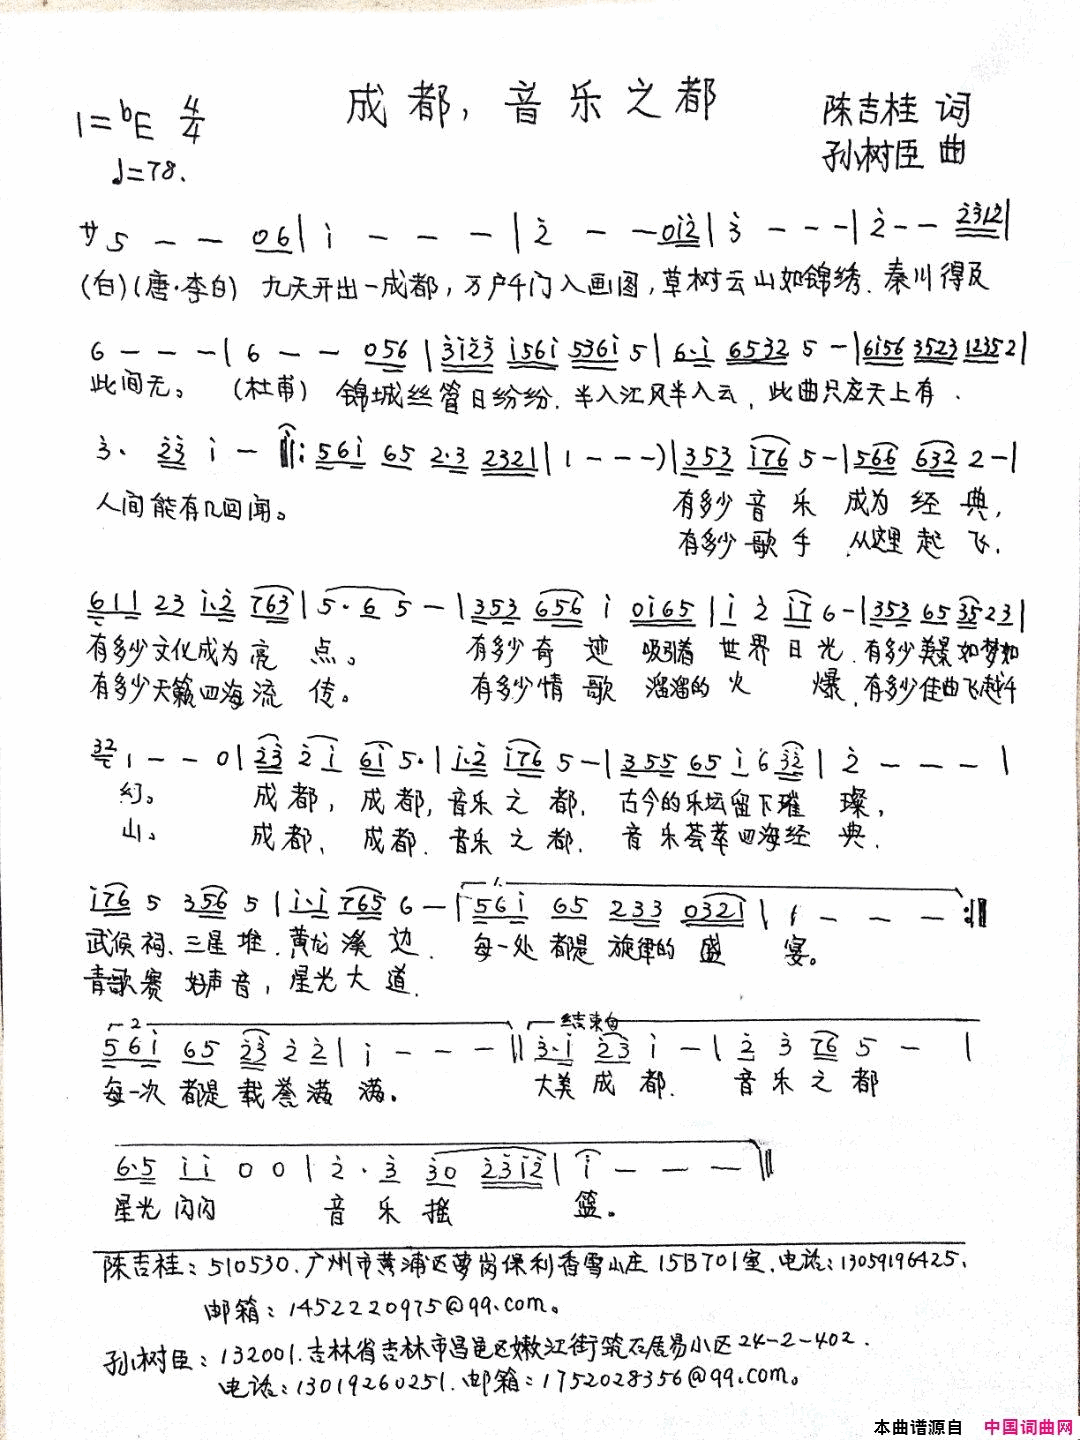 成都，音乐之都
1=ᵇE 4/4
♩=78.
陈吉桂 词
孙树臣 曲
サ5 — — 06 | i — — — | 2̇ — — 0i2̇ | 3̇ — — — | 2̇ — — 2̇3̇1̇2̇ |
(白)(唐·李白) 九天开出一成都，万户千门入画图，草树云山如锦绣．秦川得及
6 — — — | 6 — — 056 | 3̇i2̇3̇ i56i 536i 5 | 6·i 6532 5 — | 6i56 3523 1235 2 |
此间无。 (杜甫) 锦城丝管日纷纷．半入江风半入云，此曲只应天上有．
3̇· 2̇3̇ i — ‖: 56i 65 2·3 2321 | 1 — — —) | 353 i76 5 — | 566 632 2 — |
人间能有几回闻。 有多少音乐 成为经典，
有多少歌手 从这里起飞．
611 23 i·2̇ 763 | 5·6 5 — | 353 656 i 0i65 | i 2̇ i7 6 — | 353 65 35 23 |
有多少文化成为亮点。 有多少奇迹 吸引着世界目光．有多少美景如梦如
有多少天籁四海流传。 有多少情歌 溜溜的火爆，有多少佳曲飞越千
32 1 — — 0 | 2̇3̇ 2̇i 6i 5· | i·2̇ i76 5 — | 355 65 i 6 32 | 2̇ — — — |
幻。 成都，成都，音乐之都． 古今的乐坛留下璀璨，
山。 成都、成都．音乐之都． 音乐荟萃四海经典．
i76 5 356 5 | i·i 765 6 — | 1. 56i 65 233 0321 | 1 — — — :‖
武侯祠、三星堆．黄龙溪边． 每一处都是旋律的盛宴。
青歌赛 好声音，星光大道．
2 56i 65 2̇3̇ 2̇ 2̇ | i — — — ‖ 结束句 3̇·i 2̇3̇ i — | 2̇ 3̇ 76 5 — |
每一次都是载誉满满。 大美成都． 音乐之都
6·5 ii 0 0 | 2̇· 3̇ 3̇0 2̇3̇i2̇ | i — — — ‖
星光闪闪 音乐摇篮。
陈吉桂：510530．广州市黄浦区萝岗保利香雪山庄15B701室．电话：13059196425．
邮箱：1452220975@qq.com。
孙树臣：132001．吉林省吉林市昌邑区嫩江街筑石居易小区24-2-402．
电话：13019260251．邮箱：1752028356@qq.com。
本曲谱源自 中国词曲网